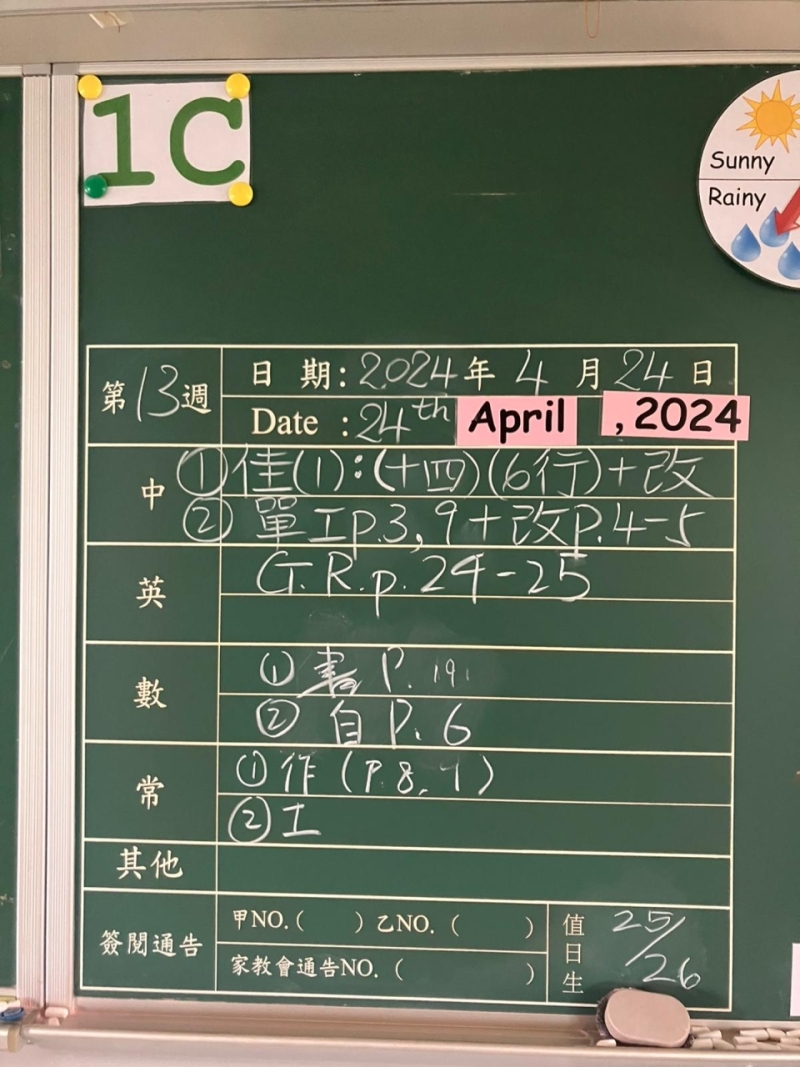 1C
Sunny
Rainy
第13週
日 期：2024年 4 月 24 日
Date : 24th April , 2024
中
①佳(1)：(十四)(6行)+改
② 單工p.3,9+改p.4-5
英
G.R.p.24-25
數
① 書 P. 19
② 自 P. 6
常
① 作 (P.8,
② 工
其他
簽閱通告
甲NO.( ) 乙NO.( )
家教會通告NO.( )
值日生
25/26